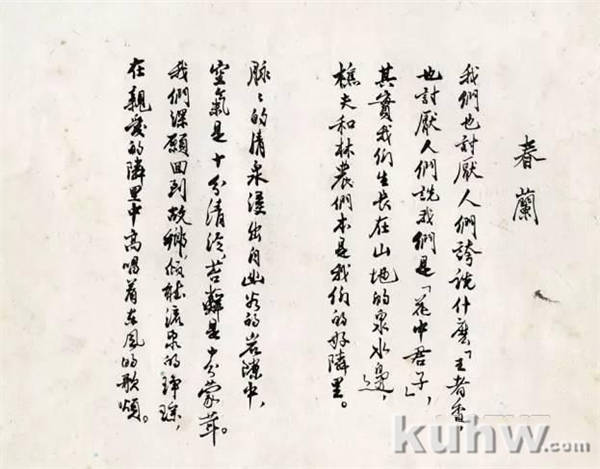 春蘭
我們也討厭人們誇說什麼「王者香」,
也討厭人們說我們是「花中君子」,
其實我们生長在山地的泉水邊,
樵夫和林農們本是我们的好隣里。
脉〻的清泉浸出自幽谷的岩隙中,
空氣是十分清泠,苔蘚是十分蒙茸。
我們深願回到故鄉,傾聽流泉的琤琮,
在親愛的隣里中高唱着東風的歌頌。
kuhw.com